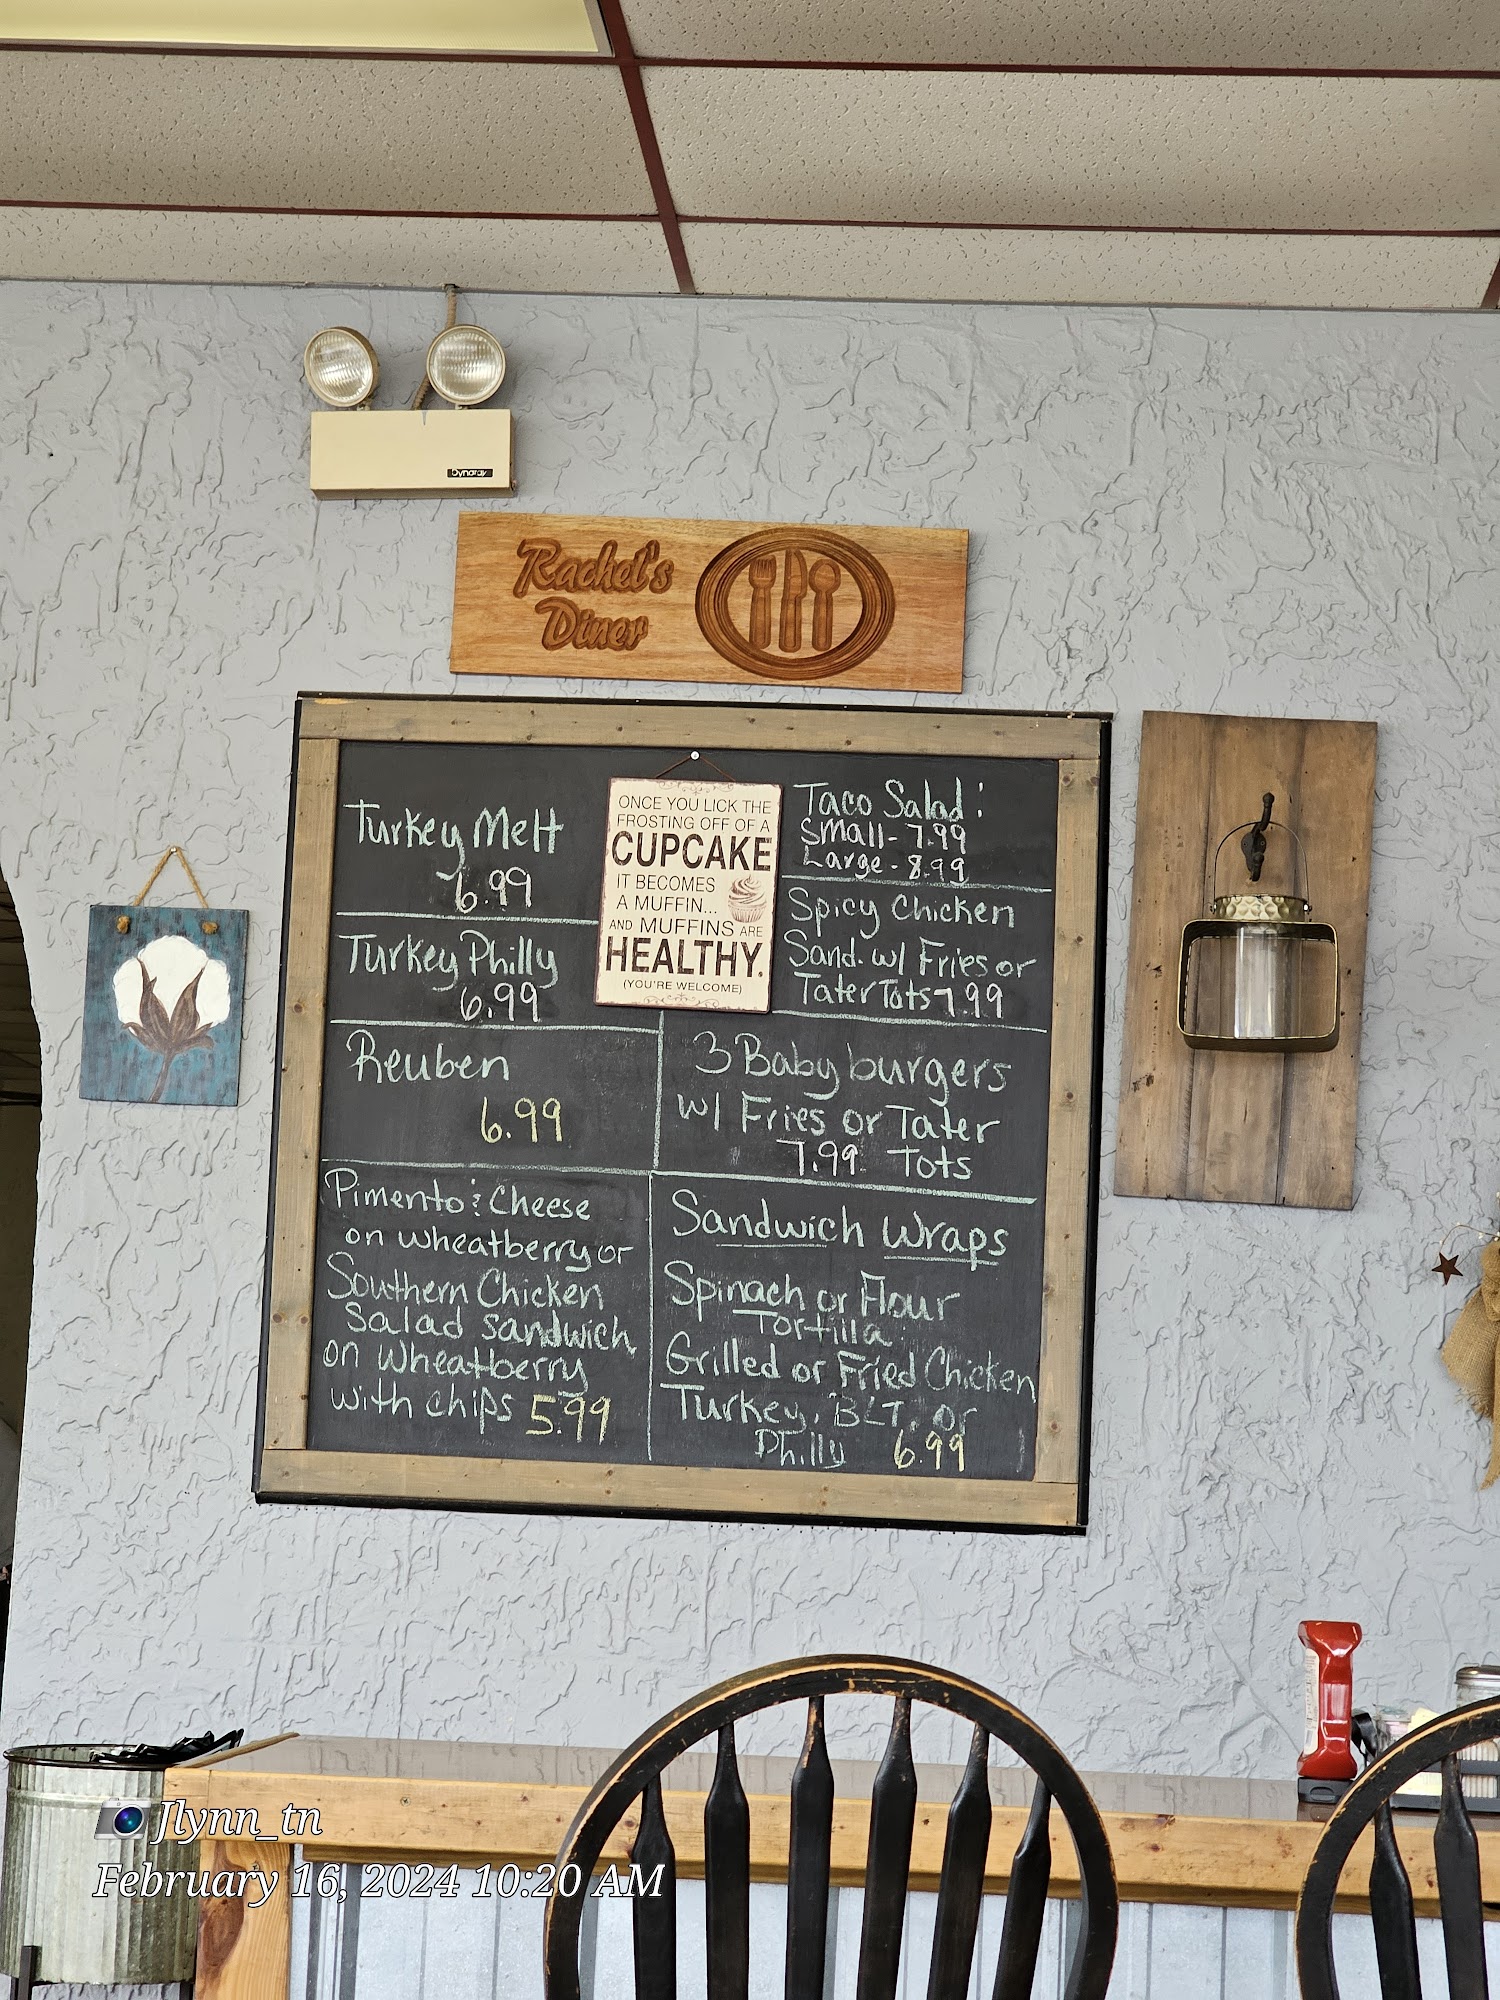 Dynaray
Rachel's
Diner
Turkey Melt
6.99
Turkey Philly
6.99
Reuben
6.99
Pimento & Cheese
on wheatberry or
Southern Chicken
Salad sandwich
on wheatberry
with chips 5.99
ONCE YOU LICK THE
FROSTING OFF OF A
CUPCAKE
IT BECOMES
A MUFFIN...
AND MUFFINS ARE
HEALTHY.
(YOU'RE WELCOME)
Taco Salad:
Small - 7.99
Large - 8.99
Spicy Chicken
Sand. w/ Fries or
Tater Tots 7.99
3 Baby burgers
w/ Fries or Tater
7.99 Tots
Sandwich Wraps
Spinach or Flour
Tortilla
Grilled or Fried Chicken
Turkey, BLT, or
Philly 6.99
Jlynn_tn
February 16, 2024 10:20 AM